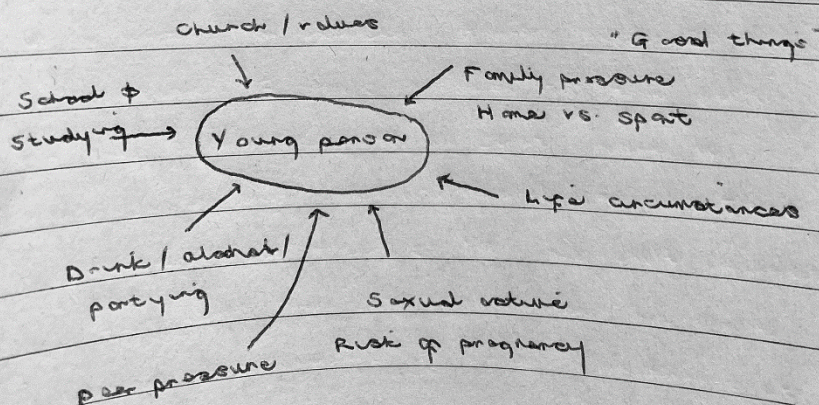 Church / values
"Good things"
School &
Studying
Family pressure
Home vs. sport
Young person
Life circumstances
Drink / alcohol /
partying
Sexual nature
Risk of pregnancy
peer pressure